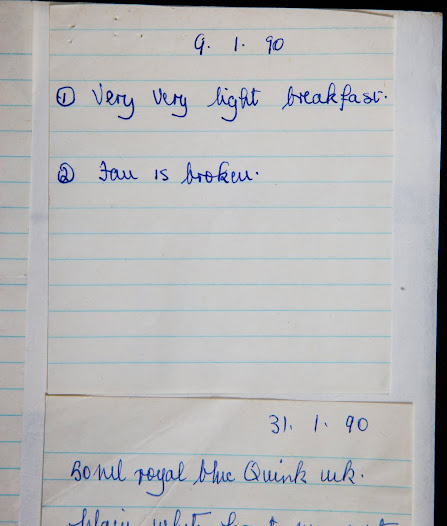 9. 1. 90
① Very very light breakfast.
② Fan is broken.
31. 1. 90
50ml royal blue Quink ink.
plain white